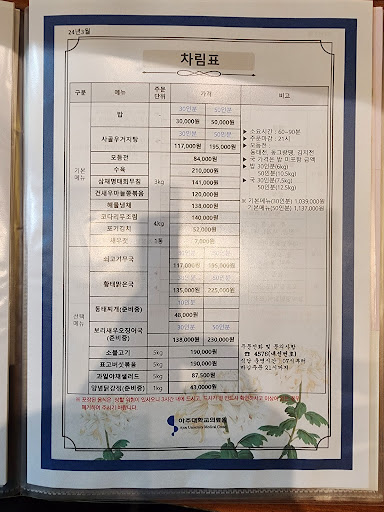 24년3월
차림표
구분 메뉴 주문단위 가격 비고
기본메뉴
밥 30인분 50인분
30,000원 50,000원
사골우거지탕 30인분 50인분
117,000원 195,000원
모듬전 84,000원
수육 3kg 210,000원
삼채명태회무침 141,000원
건새우마늘쫑볶음 120,000원
해물냉채 138,000원
코다리무조림 4kg 140,000원
포기김치 52,000원
새우젓 1통 7,000원
▶ 소요시간 : 60~90분
▶ 주문마감 : 21시
▶ 모듬전 :
동태전, 동그랑땡, 김치전
▶ 국 가격은 밥 미포함 금액
▶ 밥 30인분(6kg)
50인분(10.5kg)
▶ 국 30인분(7.5kg)
50인분(12.5kg)
※ 기본메뉴(30인분) 1,039,000원
기본메뉴(50인분) 1,137,000원
선택메뉴
쇠고기무국 30인분 50인분
117,000원 195,000원
황태맑은국 30인분 50인분
135,000원 225,000원
동태찌개(준비중) 30인분
48,000원
보리새우오징어국(준비중) 30인분 50인분
138,000원 230,000원
소불고기 5kg 190,000원
표고버섯볶음 5kg 190,000원
과일야채샐러드 5kg 87,500원
양념닭강정(준비중) 1kg 43,0000원
주문전화 및 문의사항
☎ 4576(내선번호)
식당 운영시간 : 07시부터
마감주문 21시까지
아주대학교의료원
Ajou University Medical Center